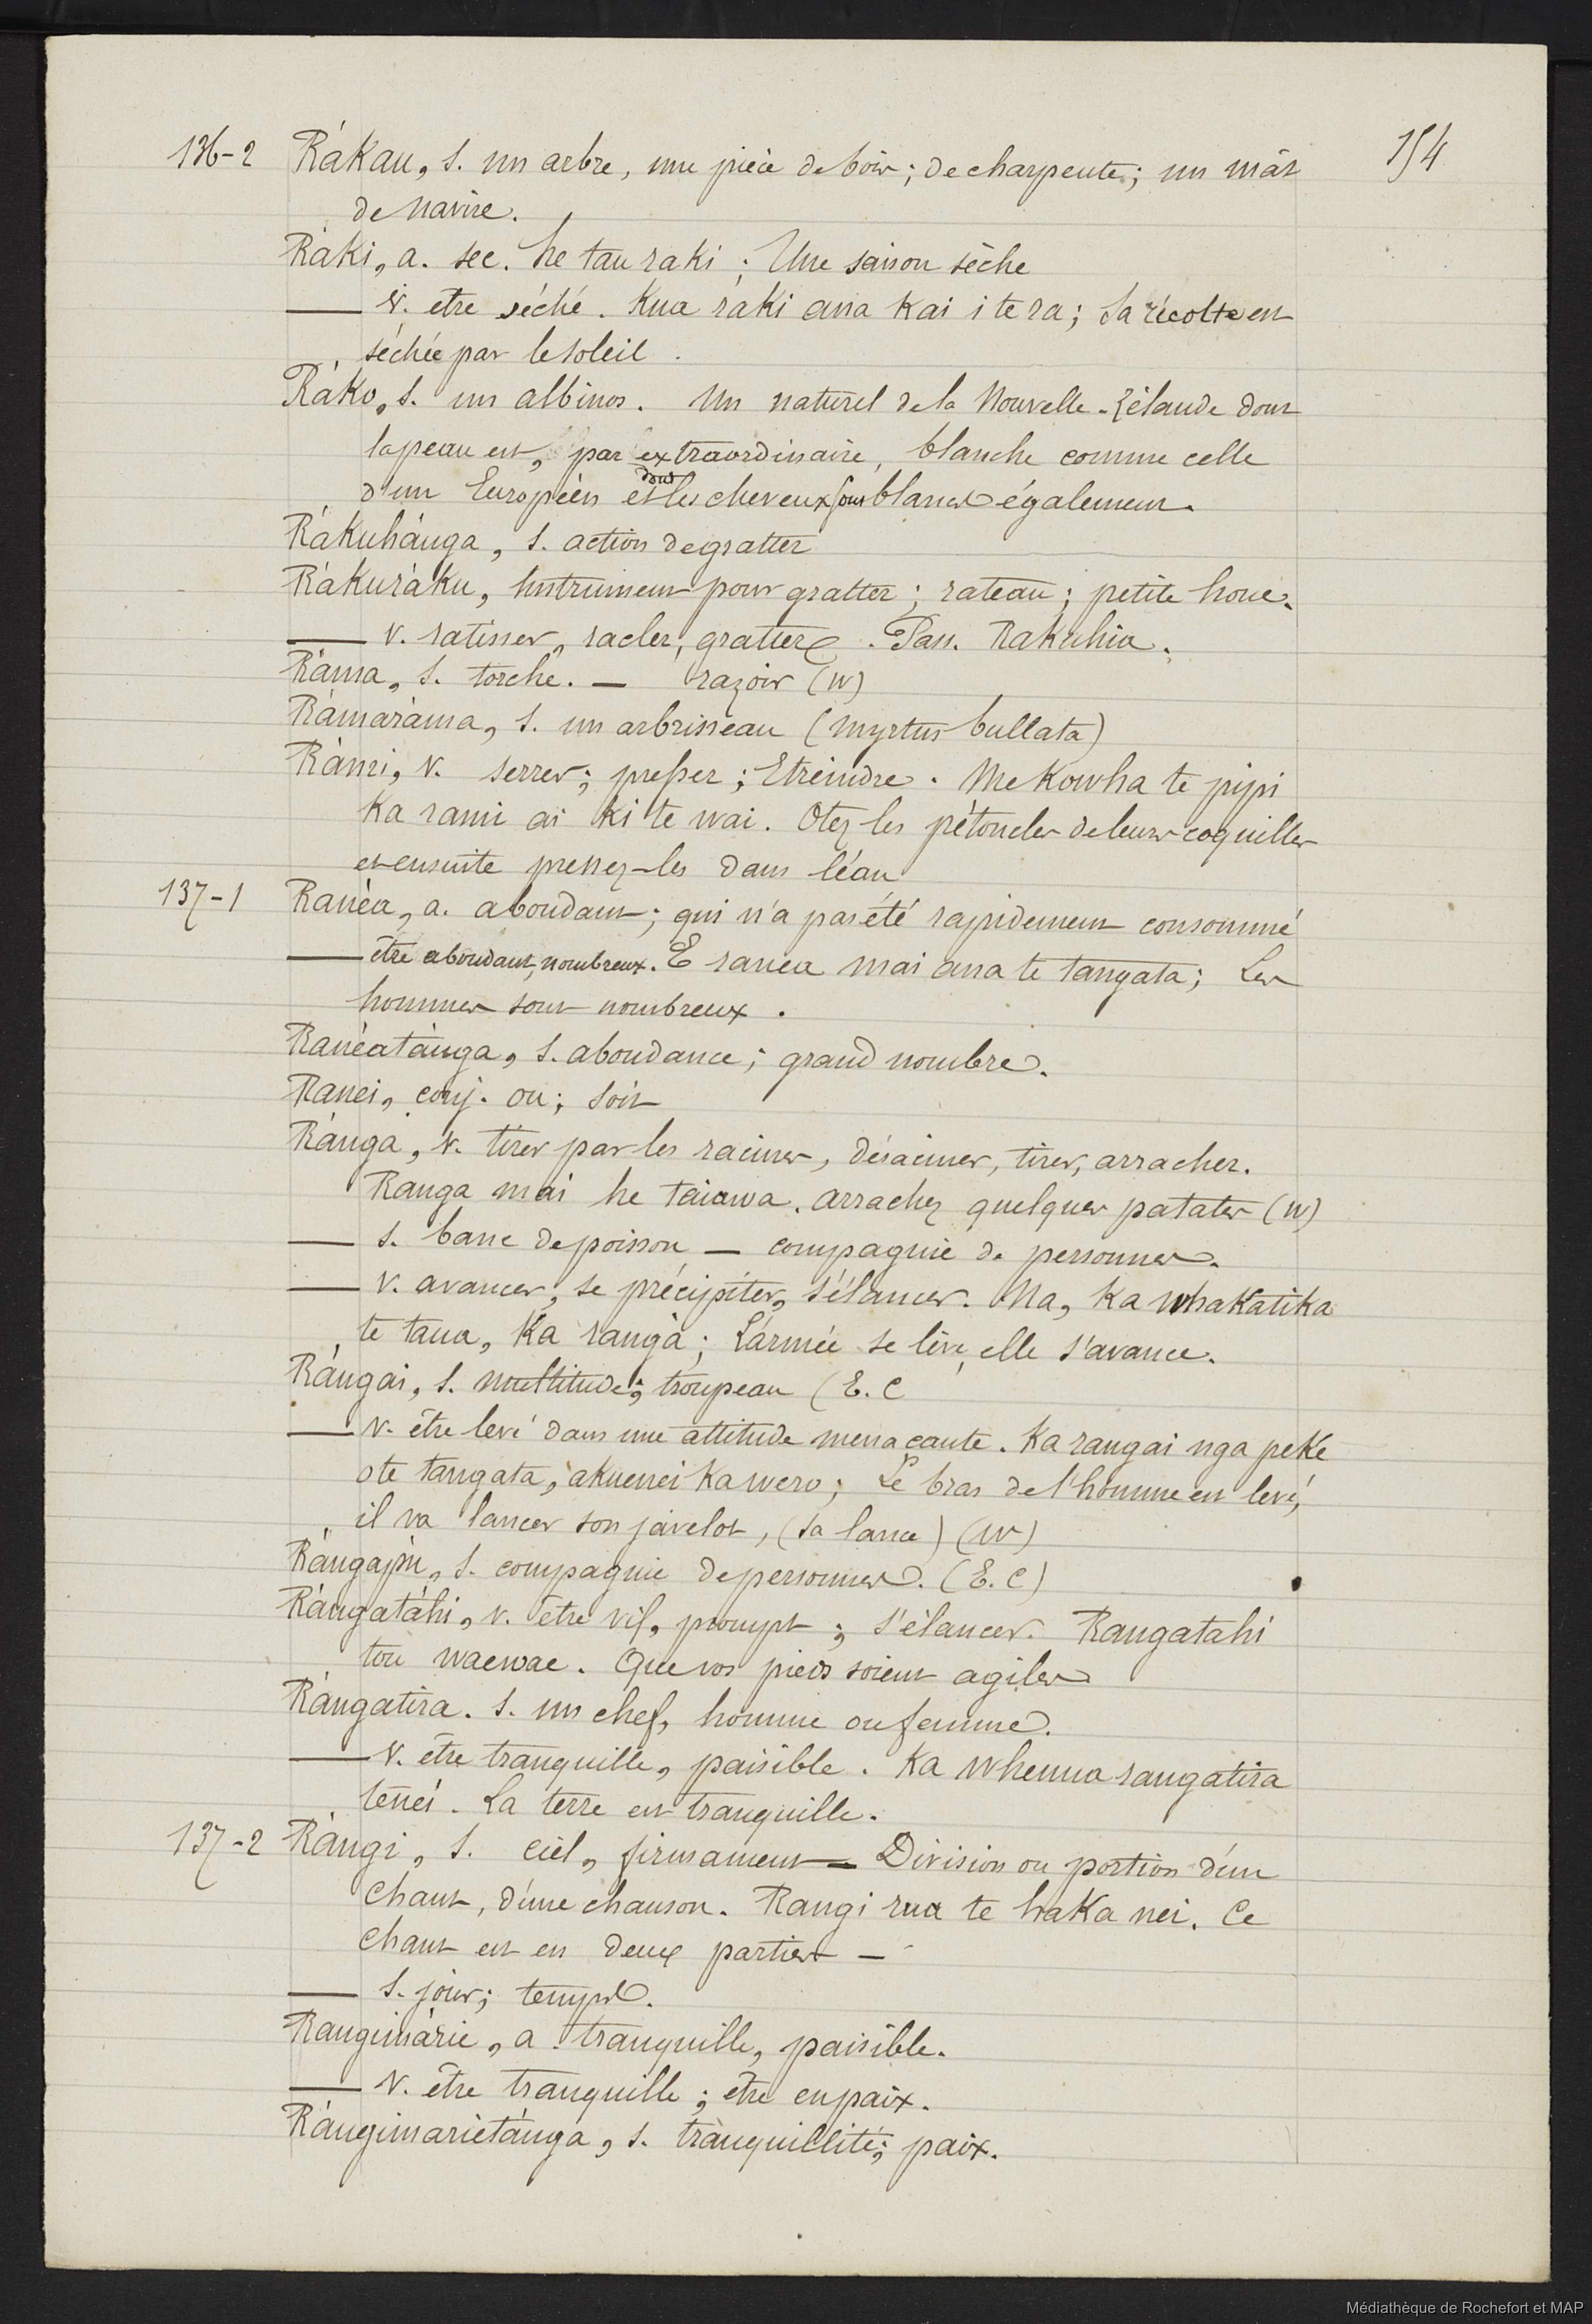 136-2 Rákau, s. un arbre, une pièce de bois; de charpente; un mât 154
de navire.
Ráki, a. sec. he tau raki; Une saison sèche
— v. etre séché. Kua ráki ana kai i te ra; Sa récolte est
séchée par le soleil.
Ráko, s. un albinos. Un naturel de la Nouvelle-Zélande dont
la peau est, par extraordinaire, blanche comme celle
d'un Européen et dont les cheveux sont blancs également.
Rákuhánga, s. action de gratter
Rákuráku, Instrument pour gratter; rateau; petite houe.
— v. ratisser, racler, gratter. Pass. Rakuhia.
Ráma, s. torche. — razoir (W)
Rámaráma, s. un arbrisseau (myrtus bullata)
Rámi, v. serrer; presser; Etreindre. Me Kowha te pipi
ka rami ai ki te wai. Otez les pétoncles de leurs coquilles
et ensuite pressez-les dans l'eau
137-1 Ranéa, a. abondant; qui n'a pas été rapidement consommé
— être abondant, nombreux. E ranea mai ana te tangata; Les
hommes sont nombreux.
Ranéatánga, s. abondance; grand nombre.
Ranei, conj. ou; soit
Ránga, v. tirer par les racines, déraciner, tirer, arracher.
Ranga mai he taiawa. arrachez quelques patates (W)
— s. banc de poisson — compagnie de personnes.
— v. avancer, se précipiter, s'élancer. Na, ka whakatika
te taua, ka ranga; L'armée se lève, elle s'avance.
Rángai, s. multitude; troupeau (E. C
— v. être levé dans une attitude menacante. Ka rangai nga peke
o te tangata, akuenei ka wero; Le bras de l'homme est levé,
il va lancer son javelot, (sa lance) (W)
Rángapú, s. compagnie de personnes. (E. C)
Rángatáhi, v. être vif, prompt; s'élancer. Rangatahi
tou waewae. Que vos pieds soient agiles
Rángatira. s. un chef, homme ou femme.
— v. être tranquille, paisible. Ka whenua rangatira
tenei. La terre est tranquille.
137-2 Rángi, s. ciel, firmament — Division ou portion d'un
chant, d'une chanson. Rangi rua te haka nei. Ce
chant est en deux parties —
— s. jour; temps.
Rangimárie, a. tranquille, paisible.
— v. être tranquille; être en paix.
Rángimarietánga, s. tranquillité; paix.
Médiathèque de Rochefort et MAP